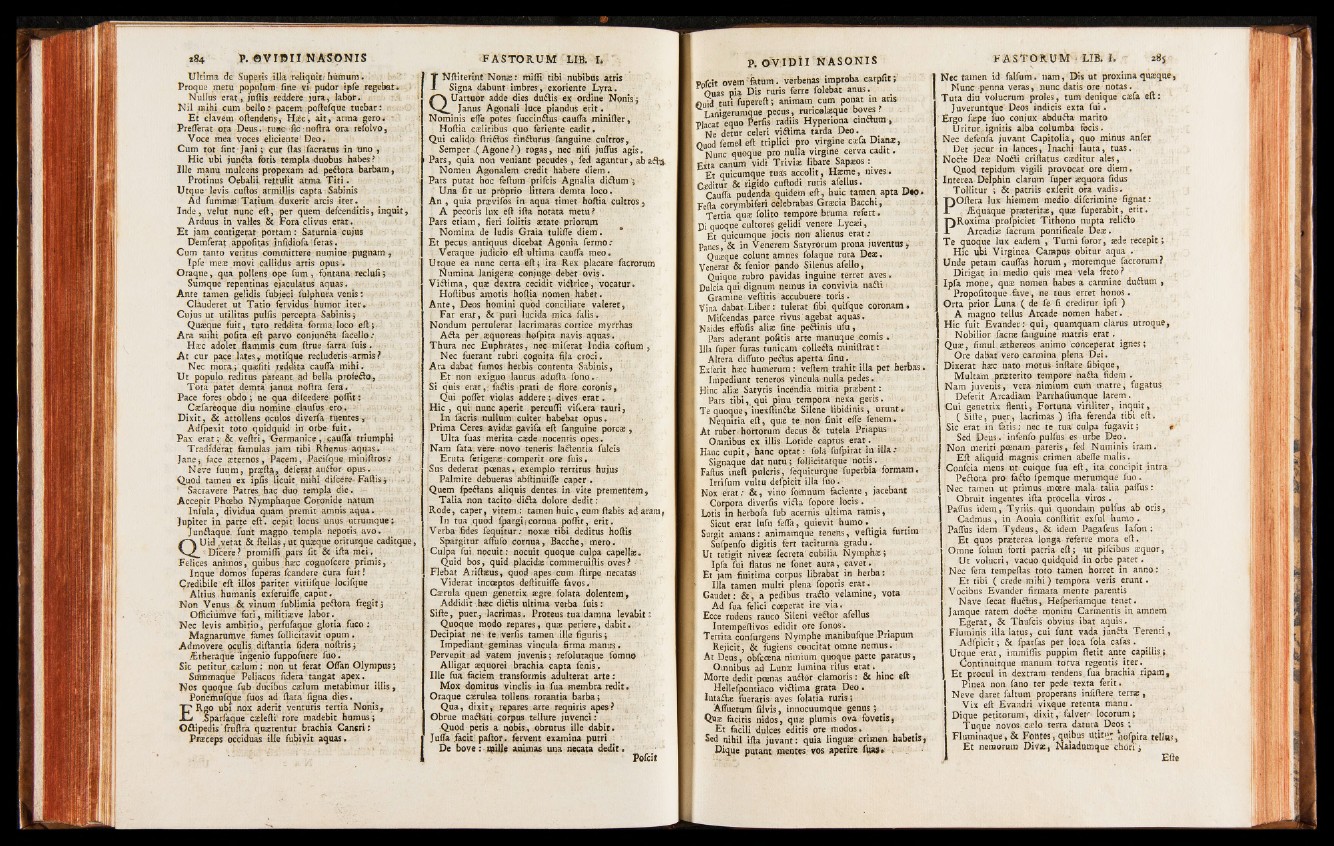 284 P. OVIDII NASONIS
Ultima de Superis illa reliquit humum.
Proque metu populum ſine vi pudor ipſe regebat.
Nullus erat, juſtis reddere jura, labor.
Nil mihi cum bello: pacem poſteſque tuebar:
Et clavem oſtendens, Hæc, ait, arma gero.
Preſſerat ora Deus. tunc ſic noſtra ora reſolvo,
Voce mea voces eliciente Deo.
Cum tot ſint Jani; cur ſtas ſacratus in uno,
Hic ubi juncta foris templa duobus habes?
Ille manu mulcens propexam ad pectora barbam,
Protinus Oebalii rettulit arma Titi.
Utque levis cuſtos armillis capta Sabinis
Ad ſummæ Tatium duxerit arcis iter.
Inde, velut nunc eſt, per quem deſcenditis, inquit,
Arduus in valles & Fora clivus erat.
Et jam contigerat portam: Saturnia cujus
Demſerat appoſitas inſidioſa ſeras.
Cum tanto veritus committere numine pugnam,
Ipſe meæ movi callidus artis opus.
Oraque, qua pollens ope ſum, fontana recluſi;
Sumque repentinas ejaculatus aquas.
Ante tamen gelidis ſubjeci ſulphura venis:
Clauderet ut Tatio fervidus humor iter.
Cujus ut utilitas pulſis percepta Sabinis;
Quæque fuit, tuto reddita forma loco eſt;
Ara mihi poſita eſt parvo conjuncta ſacello:
Hæc adolet flammis cum ſtrue farra ſuis.
At cur pace lates, motiſque recluderis armis?
Nec mora; quæſiti reddita cauſſa mihi.
Ut populo reditus pateant ad bella profecto,
Tota patet demta janua noſtra ſera.
Pace fores obdo; ne qua diſcedere poſſit:
Cæſareoque diu nomine clauſus ero.
Dixit, & attollens oculos diverſa tuentes,
Adſpexit toto quidquid in orbe fuit.
Pax erat; & veſtri, Germanice, cauſſa triumphi
Tradiderat famulas jam tibi Rhenus aquas.
Jane, face æternos, Pacem, Paciſque miniſtros:
Neve ſuum, præſta, deſerat auctor opus.
Quod tamen ex ipſis licuit mihi diſcere Faſtis;
Sacravere Patres hac duo templa die.
Accepit Phœbo Nymphaque Coronide natum
Inſula, dividua quam premit amnis aqua.
Jupiter in parte eſt. cepit locus unus utrumque:
Junctaque ſunt magno templa nepotis avo.
QUid vetat & ſtellas, ut quæque oriturque caditque,
Dicere? promiſſi pars ſit & iſta mei.
Felices animos, quibus hæc cognoſcere primis,
Inque domos ſuperas ſcandere cura fuit!
Credibile eſt illos pariter vitiiſque lociſque
Altius humanis exſeruiſſe caput.
Non Venus & vinum ſublimia pectora fregit;
Officiumve fori, militiæve labor.
Nec levis ambitio, perfuſaque gloria fuco:
Magnarumve fames ſollicitavit opum.
Admovere oculis diſtantia ſidera noſtris;
Ætheraque ingenio ſuppoſuere ſuo.
Sic petitur cælum: non ut ferat Oſſan Olympus;
Summaque Peliacus ſidera tangat apex.
Nos quoque ſub ducibus cælum metabimur illis,
Ponemuſque ſuos ad ſtata ſigna dies.
ERgo ubi nox aderit venturis tertia Nonis,
Sparſaque cæleſti rore madebit humus;
Octipedis fruſtra quærentur brachia Cancri:
Præceps occiduas ille ſubivit aquas.
FASTORUM LIB. I.
INſtiterint Nonæ: miſſi tibi nubibus atris
Signa dabunt imbres, exoriente Lyra.
QUattuor adde dies ductis ex ordine Nonis;
Janus Agonali luce piandus erit.
Nominis eſſe potes ſuccinctus cauſſa miniſter,
Hoſtia cælitibus quo feriente cadit.
Qui calido ſtrictos tincturus ſanguine cultros,
Semper (Agone?) rogas, nec niſi juſſus agis.
Pars, quia non veniant pecudes, ſed agantur, ab actu
Nomen Agonalem credit habere diem.
Pars putat hoc feſtum priſcis Agnalia dictum;
Una ſit ut proprio littera demta loco.
An, quia præviſos in aqua timet hoſtia cultros,
A pecoris lux eſt iſta notata metu?
Pars etiam, fieri ſolitis ætate priorum
Nomina de ludis Graia tuliſſe diem.
Et pecus antiquus dicebat Agonia ſermo:
Veraque judicio eſt ultima cauſſa meo.
Utque ea nunc certa eſt; ita Rex placare ſacrorum
Numina lanigeræ conjuge debet ovis.
Victima, quæ dextra cecidit victrice, vocatur.
Hoſtibus amotis hoſtia nomen habet.
Ante, Deos homini quod conciliare valeret,
Far erat, & puri lucida mica ſalis.
Nondum pertulerat lacrimatas cortice myrrhas
Acta per æquoreas hoſpita navis aquas.
Thura nec Euphrates, nec miſerat India coſtum,
Nec fuerant rubri cognita fila croci.
Ara dabat fumos herbis contenta Sabinis,
Et non exiguo laurus aduſta ſono.
Si quis erat, factis prati de flore coronis,
Qui poſſet violas addere; dives erat.
Hic, qui nunc aperit percuſſi viſcera tauri,
In ſacris nullum culter habebat opus.
Prima Ceres avidæ gaviſa eſt ſanguine porcæ,
Ulta ſuas merita cæde nocentis opes.
Nam ſata vere novo teneris lactentia ſulcis
Eruta ſetigeræ comperit ore ſuis.
Sus dederat pœnas. exemplo territus hujus
Palmite debueras abſtinuiſſe caper.
Quem ſpectans aliquis dentes in vite prementem,
Talia non tacito dicta dolore dedit:
Rode, caper, vitem: tamen huic, cum ſtabis ad aram,
In tua quod ſpargi cornua poſſit, erit.
Verba fides ſequitur: noxæ tibi deditus hoſtis
Spargitur affuſo cornua, Bacche, mero.
Culpa ſui nocuit: nocuit quoque culpa capellæ.
Quid bos, quid placidæ commeruiſtis oves?
Flebat Ariſtæus, quod apes cum ſtirpe necatas
Viderat inceptos deſtituiſſe favos.
Cærula quem genetrix ægre ſolata dolentem,
Addidit hæc dictis ultima verba ſuis:
Siſte, puer, lacrimas. Proteus tua damna levabit:
Quoque modo repares, quæ periere, dabit.
Decipiat ne te verſis tamen ille figuris;
Impediant geminas vincula firma manus.
Pervenit ad vatem juvenis; reſolutaque ſomno
Alligat æquorei brachia capta ſenis.
Ille ſua faciem transformis adulterat arte:
Mox domitus vinclis in ſua membra redit.
Oraque cærulea tollens rorantia barba;
Qua, dixit, repares arte requiris apes?
Obrue mactati corpus tellure juvenci:
Quod petis a nobis, obrutus ille dabit.
Juſſa facit paſtor. fervent examina putri
De bove: mille animas una necata dedit.
Poſcit
P. OVIDII NASONIS
Poſcit ovem fatum. verbenas improba carpſit;
Quas pia Dis ruris ferre ſolebat anus.
Quid tuti ſupereſt; animam cum ponat in aris
Lanigerumque pecus, ruricolæque boves?
Placat equo Perſis radiis Hyperiona cinctum,
Ne detur celeri victima tarda Deo.
Quod ſemel eſt triplici pro virgine cæſa Dianæ,
Nunc quoque pro nulla virgine cerva cadit.
Exta canum vidi Triviæ libare Sapæos:
Et quicumque tuas accolit, Hæme, nives.
Cæditur & rigido cuſtodi ruris aſellus.
Cauſſa pudenda quidem eſt, huic tamen apta Deo.
Feſta corymbiferi celebrabas Græcia Bacchi,
Tertia quæ ſolito tempore bruma refert.
Di quoque cultores gelidi venere Lycæi,
Et quicumque jocis non alienus erat:
Panes, & in Venerem Satyrorum prona juventus,
Quæque colunt amnes ſolaque rura Deæ.
Venerat & ſenior pando Silenus aſello,
Quique rubro pavidas inguine terret aves.
Dulcia qui dignum nemus in convivia nacti
Gramine veſtitis accubuere toris.
Vina dabat Liber: tulerat ſibi quiſque coronam.
Miſcendas parce rivus agebat aquas.
Naides effuſis aliæ ſine pectinis uſu,
Pars aderant poſitis arte manuque comis.
Illa ſuper ſuras tunicam collecta miniſtrat:
Altera diſſuto pectus aperta ſinu.
Exſerit hæc humerum: veſtem trahit illa per herbas.
Impediunt teneros vincula nulla pedes.
Hinc aliæ Satyris incendia mitia præbent:
Pars tibi, qui pinu tempora nexa geris.
Te quoque, inexſtinctæ Silene libidinis, urunt.
Nequitia eſt, quæ te non ſinit eſſe ſenem.
At ruber hortorum decus & tutela Priapus
Omnibus ex illis Lotide captus erat.
Hanc cupit, hanc optat: ſola ſuſpirat in illa:
Signaque dat nutu; ſollicitatque notis.
Faſtus ineſt pulcris, ſequiturque ſuperbia formam.
Irriſum vultu deſpicit illa ſuo.
Nox erat: &, vino ſomnum faciente, jacebant
Corpora diverſis victa ſopore locis.
Lotis in herboſa ſub acernis ultima ramis,
Sicut erat luſu feſſa, quievit humo.
Surgit amans: animamque tenens, veſtigia furtim
Suſpenſo digitis fert taciturna gradu.
Ut tetigit niveæ ſecreta cubilia Nymphæ;
Ipſa ſui flatus ne ſonet aura, cavet.
Et jam finitima corpus librabat in herba:
Illa tamen multi plena ſoporis erat.
Gaudet: &, a pedibus tracto velamine, vota
Ad ſua felici cœperat ire via.
Ecce rudens rauco Sileni vector aſellus
Intempeſtivos edidit ore ſonos.
Territa conſurgens Nymphe manibuſque Priapum
Rejicit, & fugiens concitat omne nemus.
At Deus, obſcœna nimium quoque parte paratus,
Omnibus ad Lunæ lumina riſus erat.
Morte dedit pœnas auctor clamoris: & hinc eſt
Helleſpontiaco victima grata Deo.
Intactæ fueratis aves ſolatia ruris;
Aſſuetum ſilvis, innocuumque genus;
Quæ facitis nidos, quæ plumis ova fovetis,
Et facili dulces editis ore modos.
Sed nihil iſta juvant: quia linguæ crimen habetis,
Dique putant mentes vos aperire ſuas.
FASTORUM LIB. I. 285
Nec tamen id falſum. nam, Dis ut proxima quæque,
Nunc penna veras, nunc datis ore notas.
Tuta diu volucrum proles, tum denique cæſa eſt:
Juveruntque Deos indicis exta ſui.
Ergo ſæpe ſuo conjux abducta marito
Uritur ignitis alba columba focis.
Nec defenſa juvant Capitolia, quo minus anſer
Det jecur in lances, Inachi lauta, tuas.
Nocte Deæ Nocti criſtatus cæditur ales,
Quod tepidum vigili provocat ore diem.
Interea Delphin clarum ſuper æquora ſidus
Tollitur; & patriis exſerit ora vadis.
POſtera lux hiemem medio diſcrimine ſignat:
Æquaque præteritæ, quæ ſuperabit, erit.
PRoxima proſpiciet Tithono nupta relicto
Arcadiæ ſacrum pontificale Deæ.
Te quoque lux eadem, Turni ſoror, æde recepit;
Hic ubi Virginea Campus obitur aqua.
Unde petam cauſſas horum, moremque ſacrorum?
Dirigat in medio quis mea vela freto?
Ipſa mone, quæ nomen habes a carmine ductum,
Propoſitoque fave, ne tuus erret honos.
Orta prior Luna (de ſe ſi creditur ipſi)
A magno tellus Arcade nomen habet.
Hic fuit Evander: qui, quamquam clarus utroque,
Nobilior ſacræ ſanguine matris erat.
Quæ, ſimul æthereos animo conceperat ignes;
Ore dabat vero carmina plena Dei.
Dixerat hæc nato motus inſtare ſibique,
Multam præterito tempore nacta fidem.
Nam juvenis, vera nimium cum matre, fugatus
Deſerit Arcadiam Parrhaſiumque larem.
Cui genetrix flenti, Fortuna viriliter, inquit,
(Siſte, puer, lacrimas) iſta ferenda tibi eſt.
Sic erat in fatis: nec te tua culpa fugavit;
Sed Deus. infenſo pulſus es urbe Deo.
Non meriti pœnam pateris, ſed Numinis iram.
Eſt aliquid magnis crimen abeſſe malis.
Conſcia mens ut cuique ſua eſt, ita concipit intra
Pectora pro facto ſpemque metumque ſuo.
Nec tamen ut primus mœre mala talia paſſus:
Obruit ingentes iſta procella viros.
Paſſus idem, Tyriis qui quondam pulſus ab oris,
Cadmus, in Aonia conſtitit exſul humo.
Paſſus idem Tydeus, & idem Pagaſeus Iaſon:
Et quos præterea longa referre mora eſt.
Omne ſolum forti patria eſt; ut piſcibus æquor,
Ut volucri, vacuo quidquid in orbe patet.
Nec fera tempeſtas toto tamen horret in anno:
Et tibi (crede mihi) tempora veris erunt.
Vocibus Evander firmata mente parentis
Nave ſecat fluctus, Heſperiamque tenet.
Jamque ratem doctæ monitu Carmentis in amnem
Egerat, & Thuſcis obvius ibat aquis.
Fluminis illa latus, cui ſunt vada juncta Terenti,
Adſpicit; & ſparſas per loca ſola caſas.
Utque erat, immiſſis puppim ſtetit ante capillis;
Continuitque manum torva regentis iter.
Et procul in dextram tendens ſua brachia ripam,
Pinea non ſano ter pede texta ferit.
Neve daret ſaltum properans inſiſtere terræ,
Vix eſt Evandri vixque retenta manu.
Dique petitorum, dixit, ſalvete locorum;
Tuque novos cælo terra datura Deos;
Fluminaque, & Fontes, quibus utitur hoſpita tellus,
Et nemorum Divæ, Naiadumque chori;
Eſte